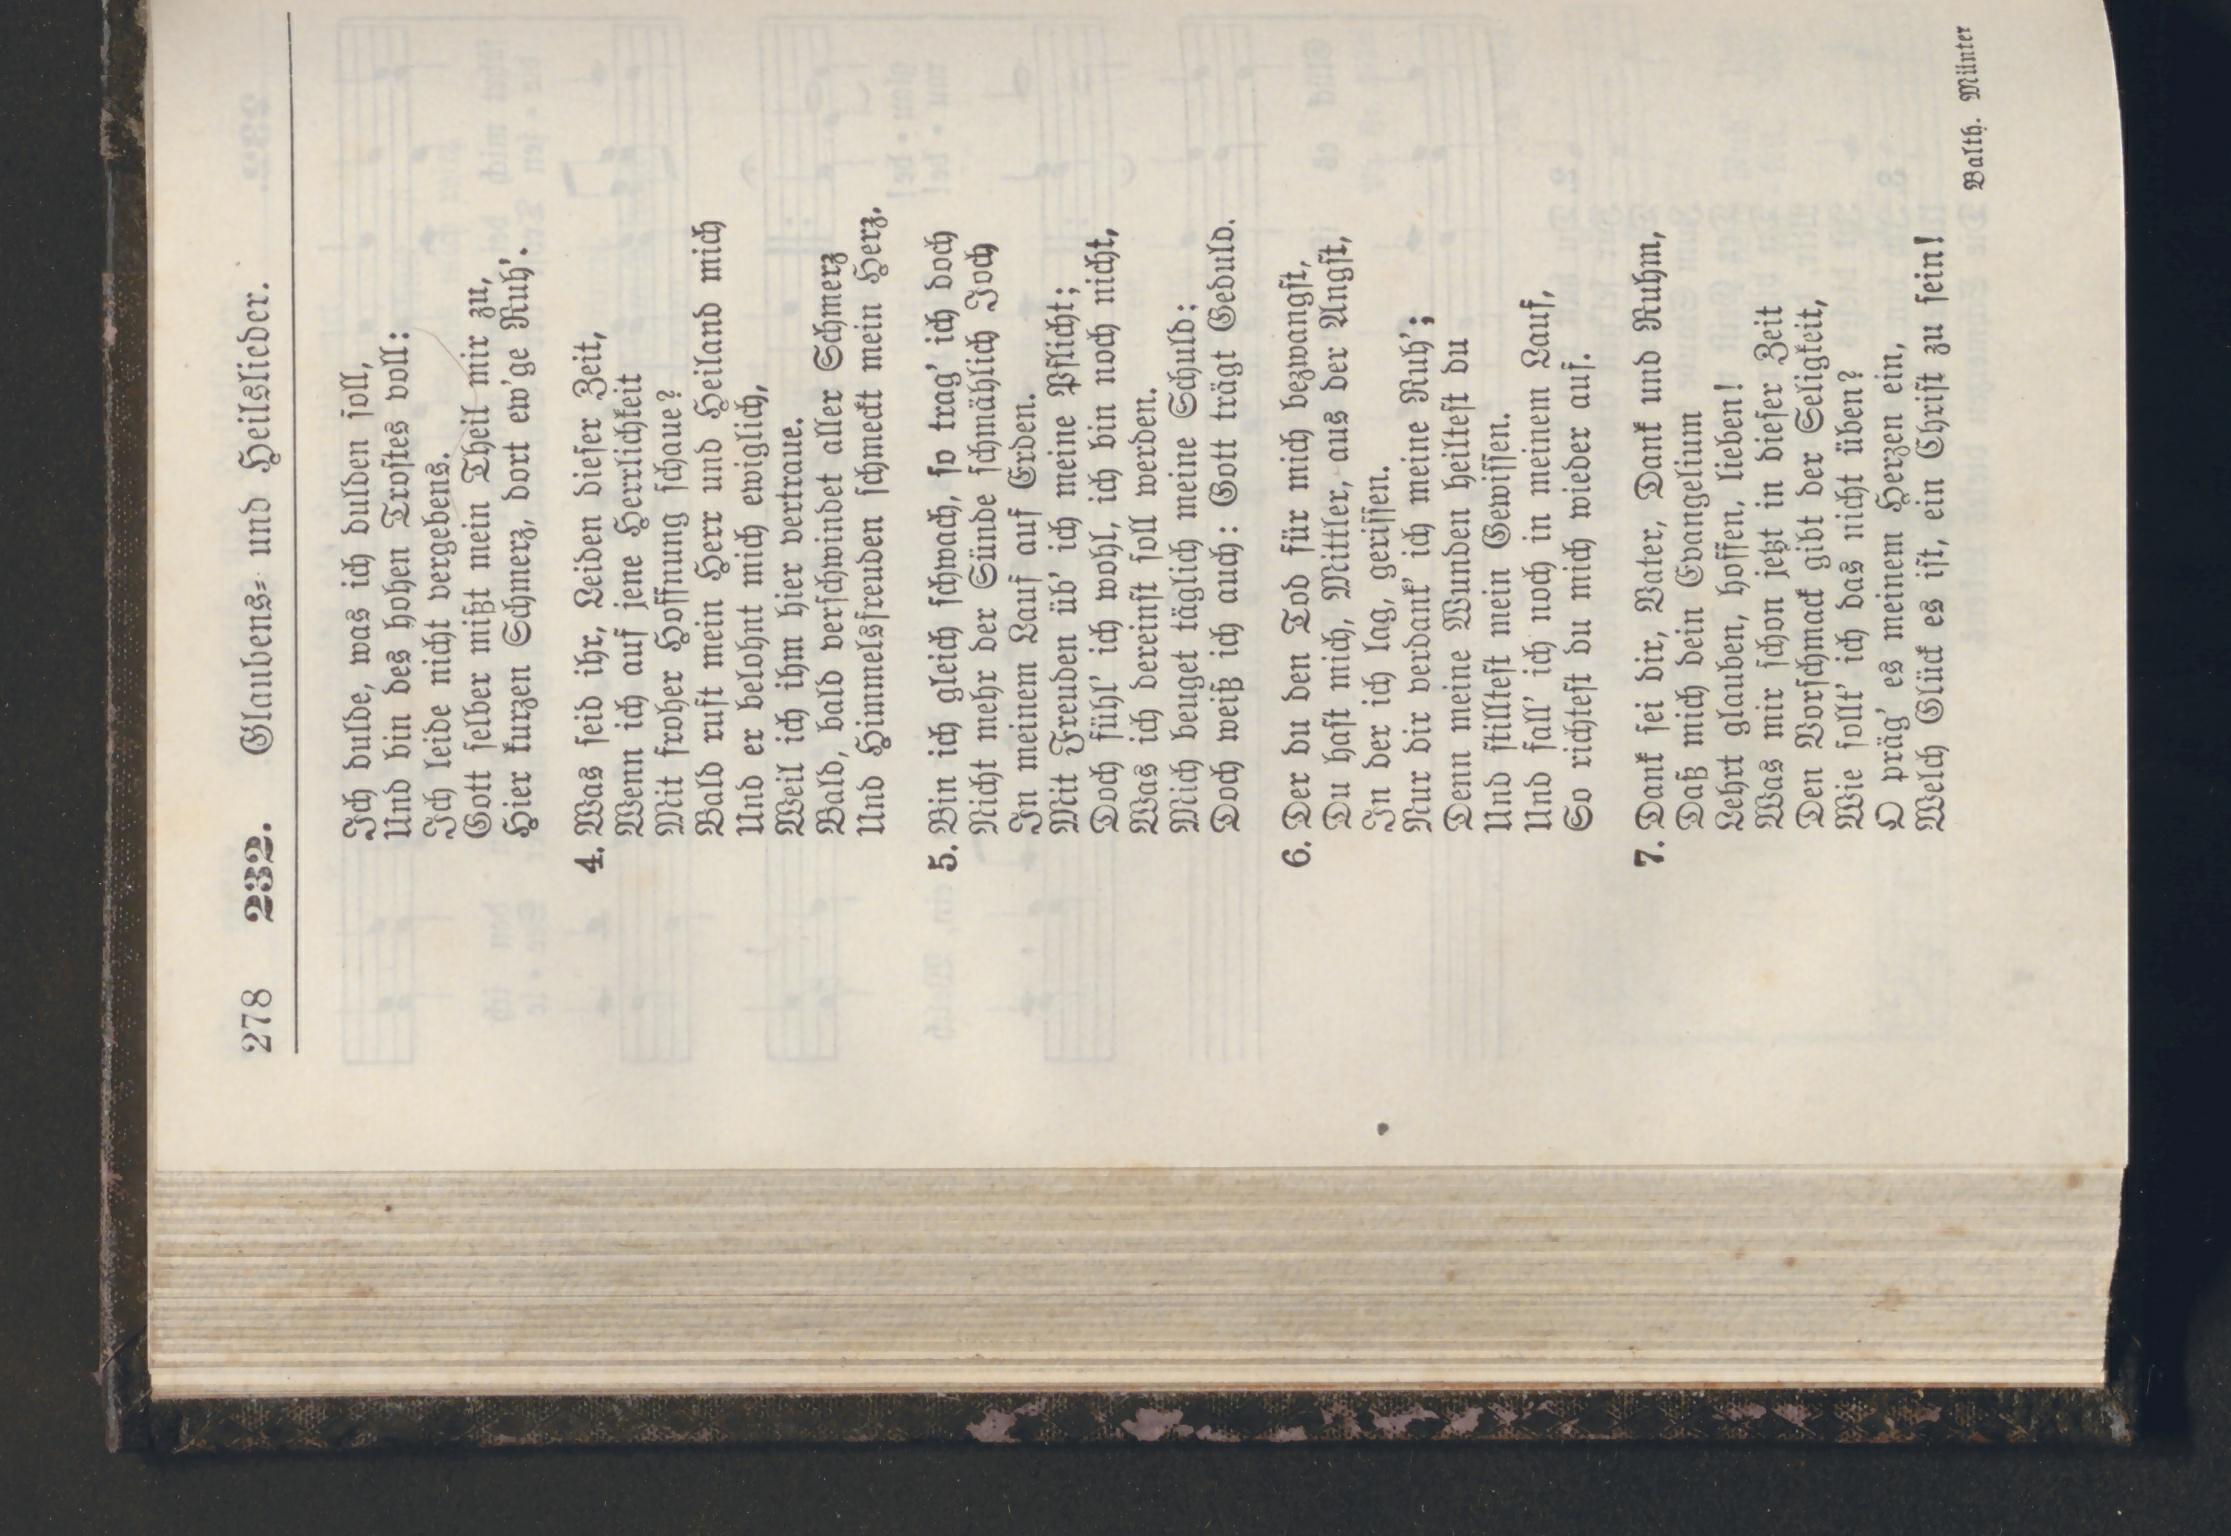 278 232. Glaubens- und Heilslieder.
Ich dulde, was ich dulden soll,
Und bin des hohen Trostes voll:
Ich leide nicht vergebens.
Gott selber mißt mein Theil mir zu,
Hier kurzen Schmerz, dort ew'ge Ruh'.
4. Was seid ihr, Leiden dieser Zeit,
Wenn ich auf jene Herrlichkeit
Mit froher Hoffnung schaue?
Bald ruft mein Herr und Heiland mich
Und er belohnt mich ewiglich,
Weil ich ihm hier vertraue.
Bald, bald verschwindet aller Schmerz
Und Himmelsfreuden schmeckt mein Herz.
5. Bin ich gleich schwach, so trag' ich doch
Nicht mehr der Sünde schmählich Joch
In meinem Lauf auf Erden.
Mit Freuden üb' ich meine Pflicht;
Doch fühl' ich wohl, ich bin noch nicht,
Was ich dereinst soll werden.
Mich beuget täglich meine Schuld;
Doch weiß ich auch: Gott trägt Geduld.
6. Der du den Tod für mich bezwangst,
Du hast mich, Mittler, aus der Angst,
In der ich lag, gerissen.
Nur dir verdank' ich meine Ruh';
Denn meine Wunden heiltest du
Und stilltest mein Gewissen.
Und fall' ich noch in meinem Lauf,
So richtest du mich wieder auf.
7. Dank sei dir, Vater, Dank und Ruhm,
Daß mich dein Evangelium
Lehrt glauben, hoffen, lieben!
Was mir schon jetzt in dieser Zeit
Den Vorschmack gibt der Seligkeit,
Wie sollt' ich das nicht üben?
O präg' es meinem Herzen ein,
Welch Glück es ist, ein Christ zu sein!
Balth. Münter